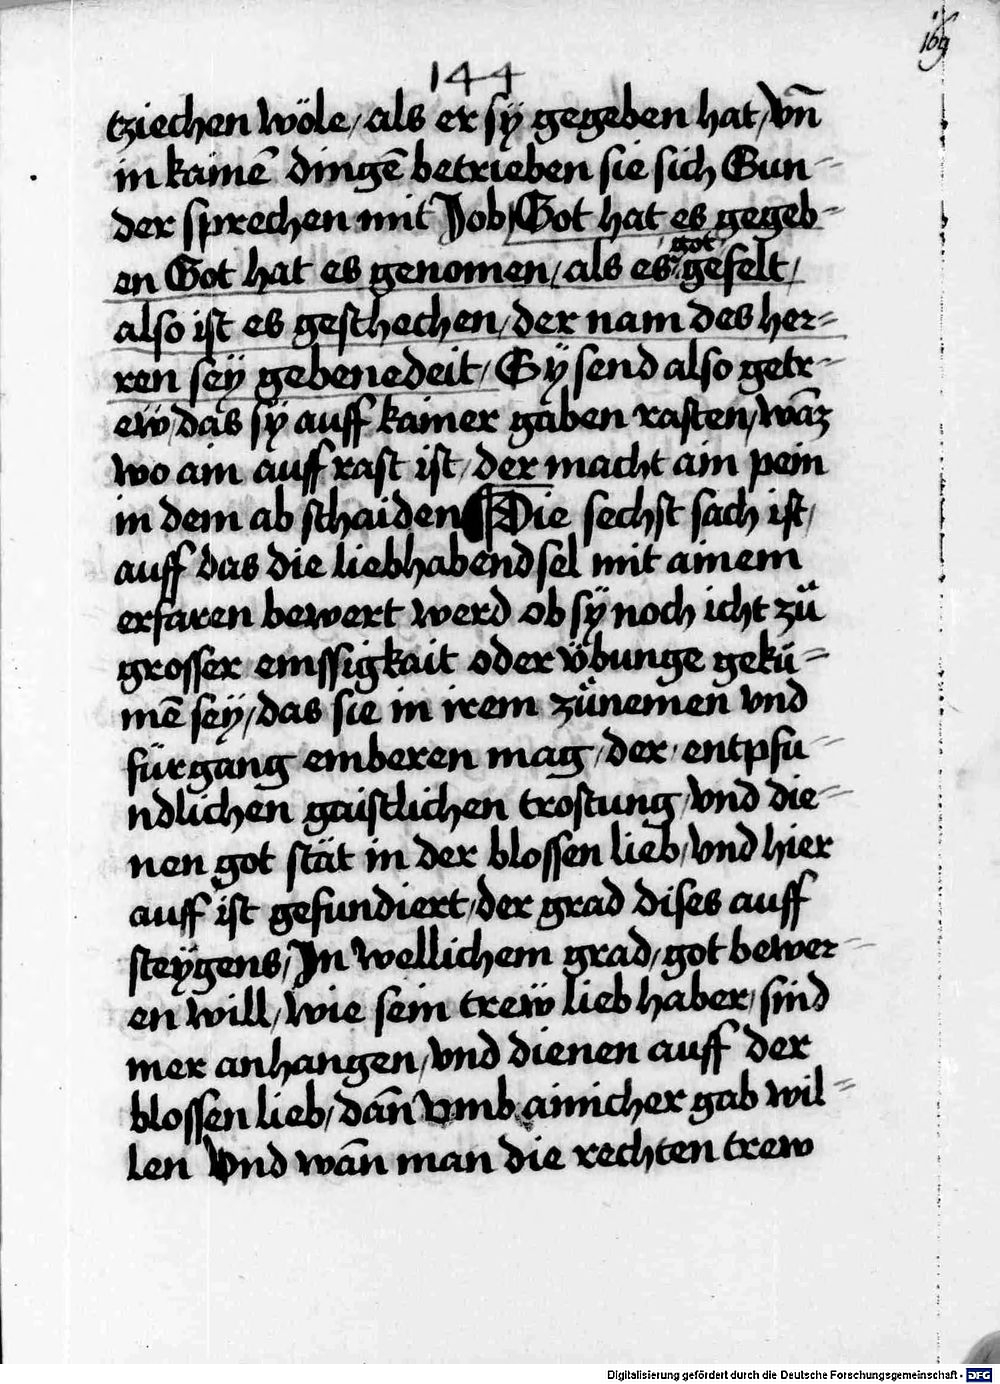 169
144
tziechen wöle / als er sÿ gegeben hat / vn̄
in kainē dingē betrieben sie sich Sun⸗
der sprechen mit Job / Got hat es gegeb⸗
en Got hat es genomen / als es got gefelt /
also ist es geschechen / der nam des her⸗
ren seÿ gebenedeit / Sÿ send also getr⸗
ew / das sÿ auff kainer gaben rasten / wān
wo ain auff rast ist / der macht ain pein
in dem ab schaiden Die sechst sach ist /
auff das die liebhabend sel mit ainem
erfaren bewert werd ob sÿ noch icht zů
grosser emssigkait oder v̈bunge gekū⸗
mē seÿ / das sie in irem zůnemen vnd
fürgang emberen mag / der / entpfu⸗
ndlichen gaistlichen trostung / vnd die⸗
nen got stät in der blossen lieb / vnd hier
auff ist gefundiert / der grad dises auff
steÿgens / In wellichem grad / got bewer⸗
en will / wie sein treẅ lieb haber / sind
mer anhangen / vnd dienen auff der
blossen lieb / dān vmb ainicher gab wil⸗
len Vnd wān man die rechten trew
Digitalisierung gefördert durch die Deutsche Forschungsgemeinschaft - DFG